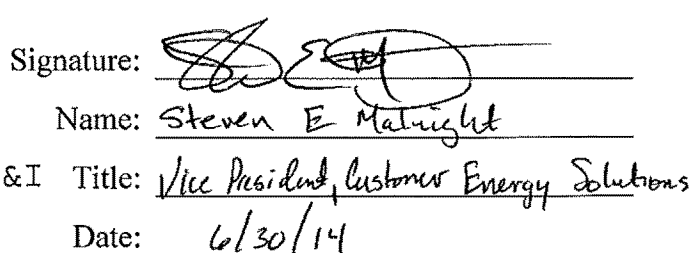 Signature:
Name: Steven E Malnight
&I Title: Vice President, Customer Energy Solutions
Date: 6/30/14